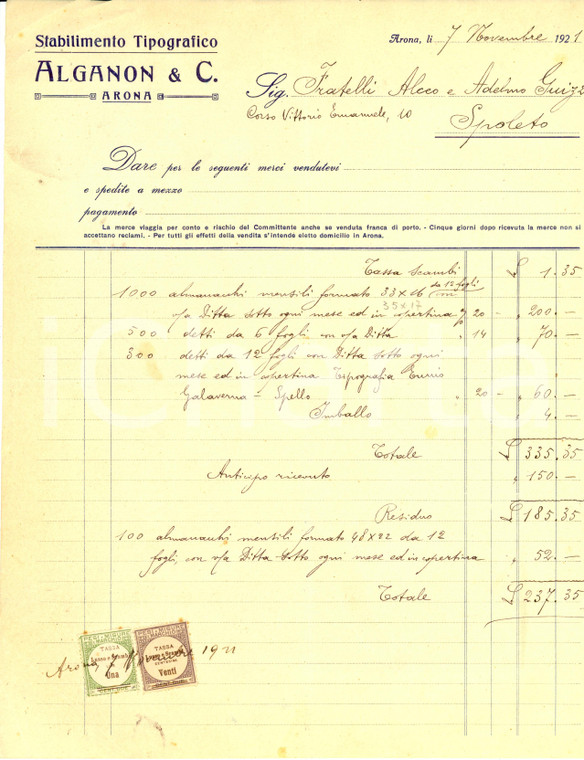 Stabilimento Tipografico
ALGANON & C.
ARONA
Arona, li 7 Novembre 1921
Sig. Fratelli Aleco e Adelmo
Corso Vittorio Emanuele, 10
Spoleto
Dare per le seguenti merci vendutevi
e spedite a mezzo
pagamento
La merce viaggia per conto e rischio del Committente anche se venduta franca di porto. - Cinque giorni dopo ricevuta la merce non si
accettano reclami. - Per tutti gli effetti della vendita s'intende eletto domicilio in Arona.
Tassa scambi £ 1.35
1000 almanacchi mensili formato 33×16 da 12 fogli con
35×17
v/a Ditta sotto ogni mese ed in copertina % 20 — " 200.—
500 detti da 6 fogli con v/a Ditta " 14 " 70.—
300 detti da 12 fogli con Ditta sotto ogni
mese ed in copertina Tipografia Ennio
Galaverna = Spello " 20 — " 60.—
Imballo " 4.—
Totale £ 335.35
Anticipo ricevuto " 150.—
Residuo £ 185.35
100 almanacchi mensili formato 48×22 da 12
fogli, con v/a Ditta sotto ogni mese ed in copertina " 52.—
Totale £ 237.35
TASSA
Una
TASSA
CENTESIMI
Venti
Arona 7 Novembre 1921